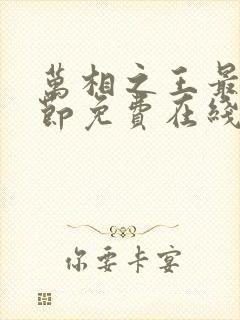 萬相之王最
節免費在綫
你要卡宴